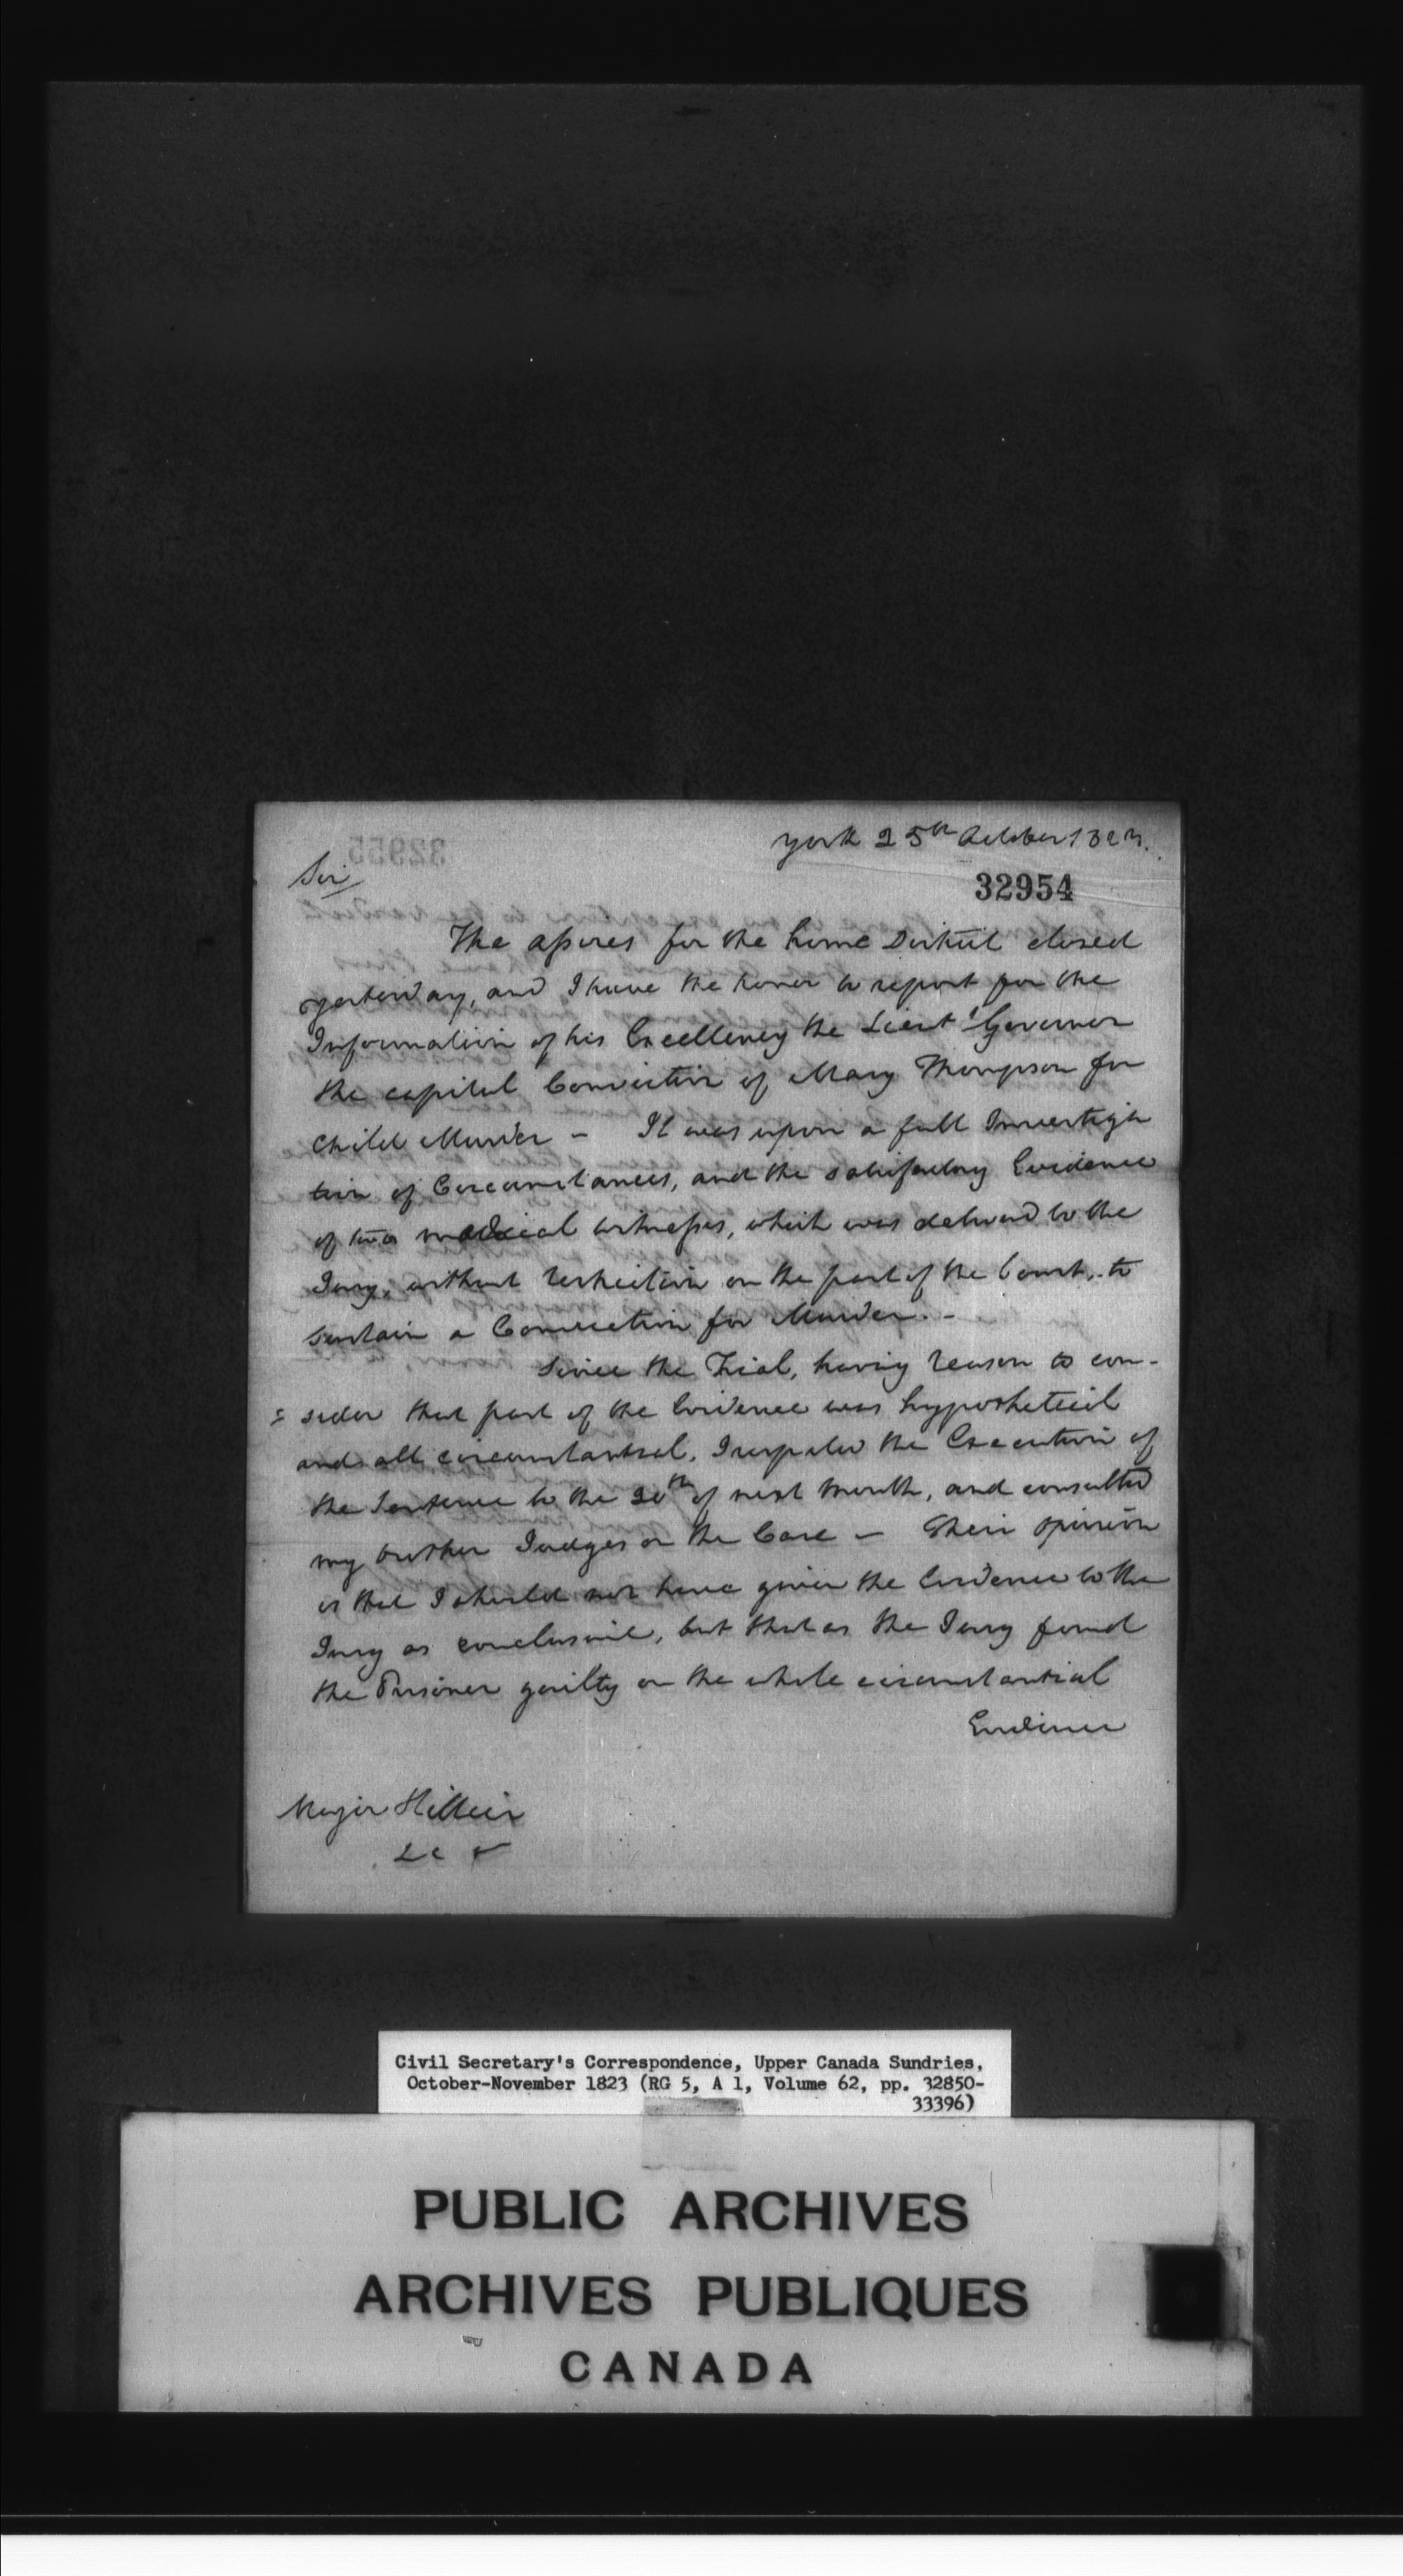 York 25th October 1823.
Sir
32954
The assizes for the home District closed
yesterday, and I have the honor to report for the
Information of his Excellency the Lieut Governor
the capital Conviction of Mary Thompson for
Child Murder - It was upon a full Investiga
tion of Circumstances, and the satisfactory Evidence
of two medical witnesses, which was delivered to the
Jury, without restriction on the part of the Court, to
sustain a Conviction for Murder. -
Since the Trial, having reason to con-
= sider that part of the Evidence was hypothetical
and all circumstantial, I respited the Execution of
the Sentence to the 20th of next Month, and consulted
my brother Judges on the Case - Their opinion
is that I should not have given the Evidence to the
Jury as conclusive, but that as the Jury found
the Prisoner guilty on the whole circumstantial
Evidence
Major Hillier
&c &
Civil Secretary's Correspondence, Upper Canada Sundries,
October-November 1823 (RG 5, A 1, Volume 62, pp. 32850-
33396)
PUBLIC ARCHIVES
ARCHIVES PUBLIQUES
CANADA